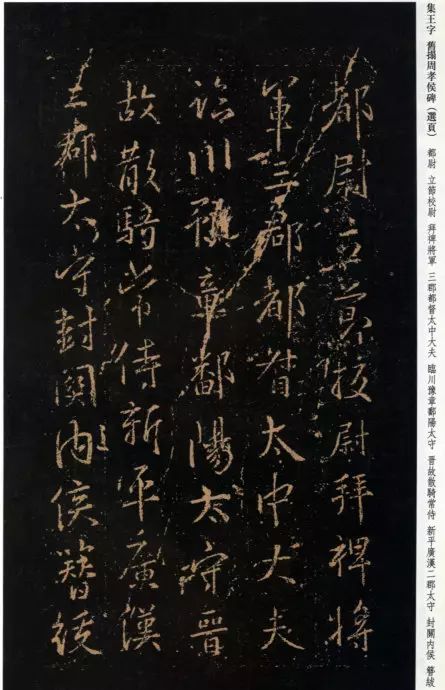 集王字 舊搨周孝侯碑（選頁） 都尉 立節校尉 拜裨將軍 三郡都督太中大夫 臨川豫章鄱陽太守 晉故散騎常侍 新平廣漢二郡太守 封關內侯 簪紱
都尉立節校尉拜裨將
軍三郡都督太中大夫
臨川豫章鄱陽太守晉
故散騎常侍新平廣漢
二郡太守封關內侯簪紱